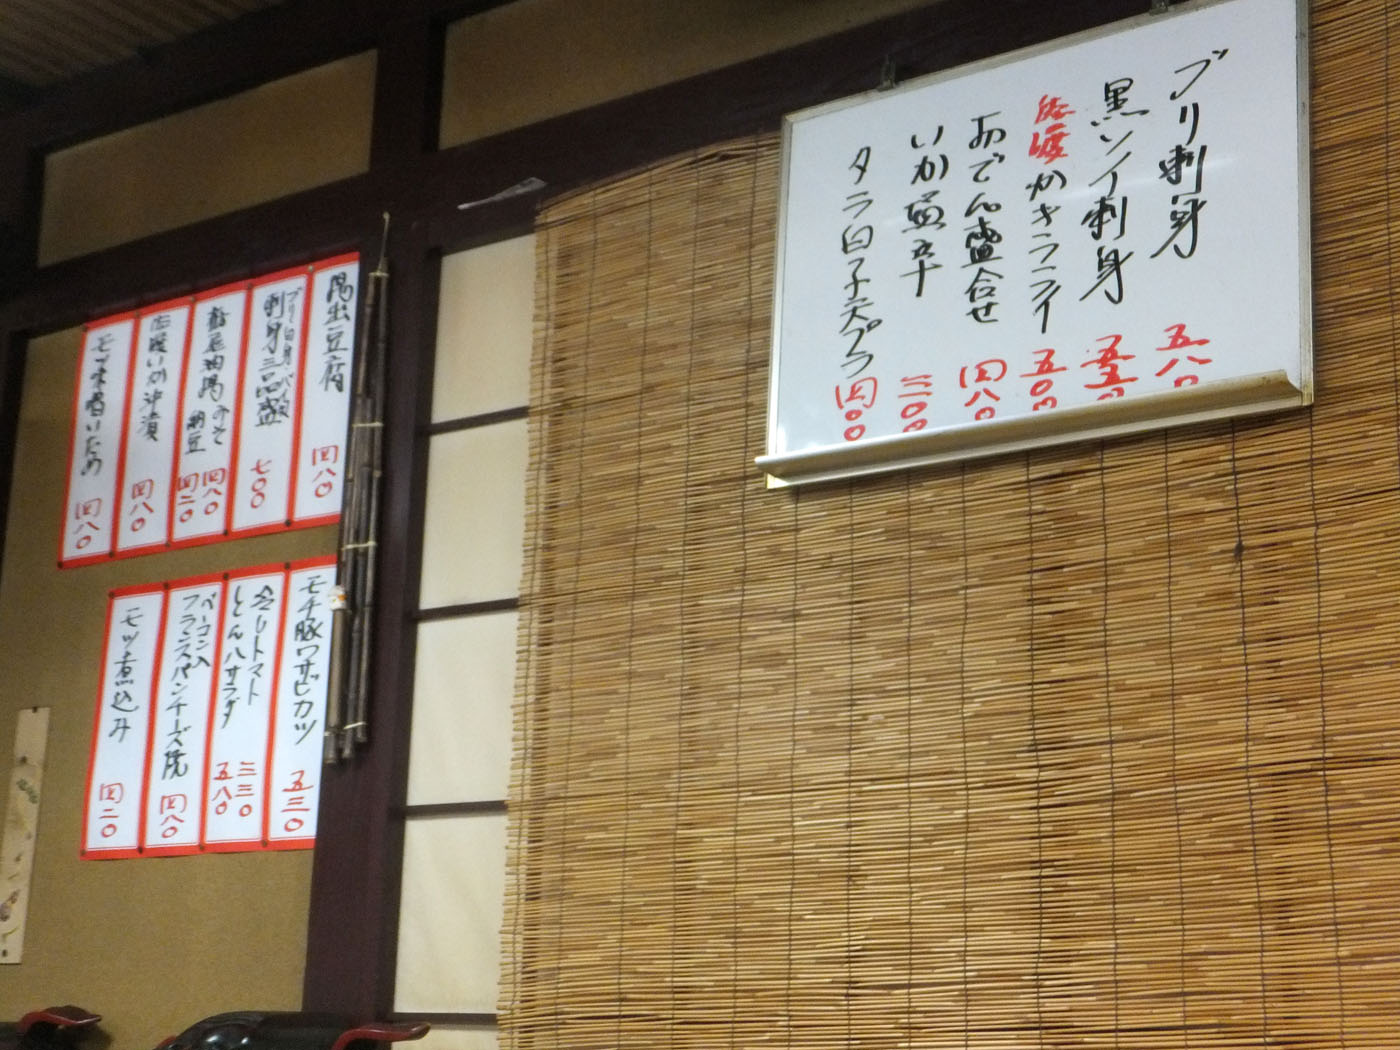 ブリ刺身 五八〇
黒ソイ刺身 五五〇
佐渡かきフライ 五〇〇
おでん盛合せ 四八〇
いか塩辛 三〇〇
タラ白子天プラ 四〇〇
揚出豆腐 四八〇
刺身三品盛 七〇〇
栃尾油揚 みそ 四八〇
納豆 四二〇
佐渡いか沖漬 四八〇
モツ味噌いため 四八〇
モチ豚ワサビカツ 五三〇
冷しトマト 三三〇
しとんハサラダ 五八〇
ベーコン入
フランスパンチーズ焼 四八〇
モツ煮込み 四二〇